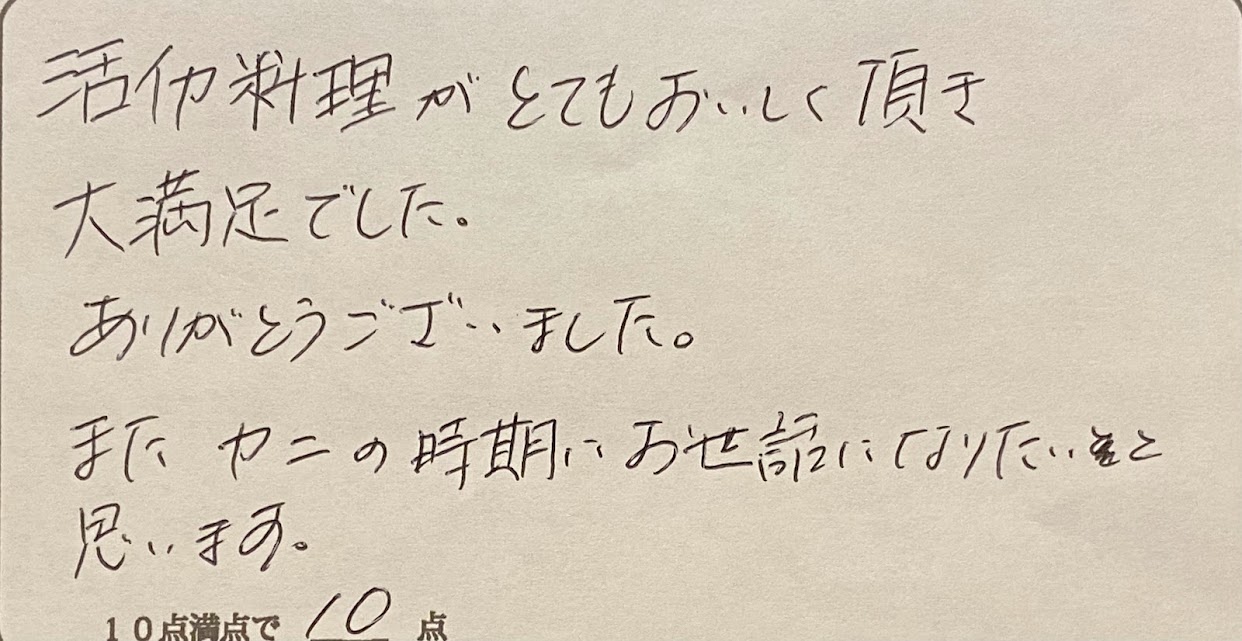 活イカ料理がとてもおいしく頂き
大満足でした。
ありがとうございました。
またカニの時期にお世話になりたいと
思います。
10点満点で 10 点